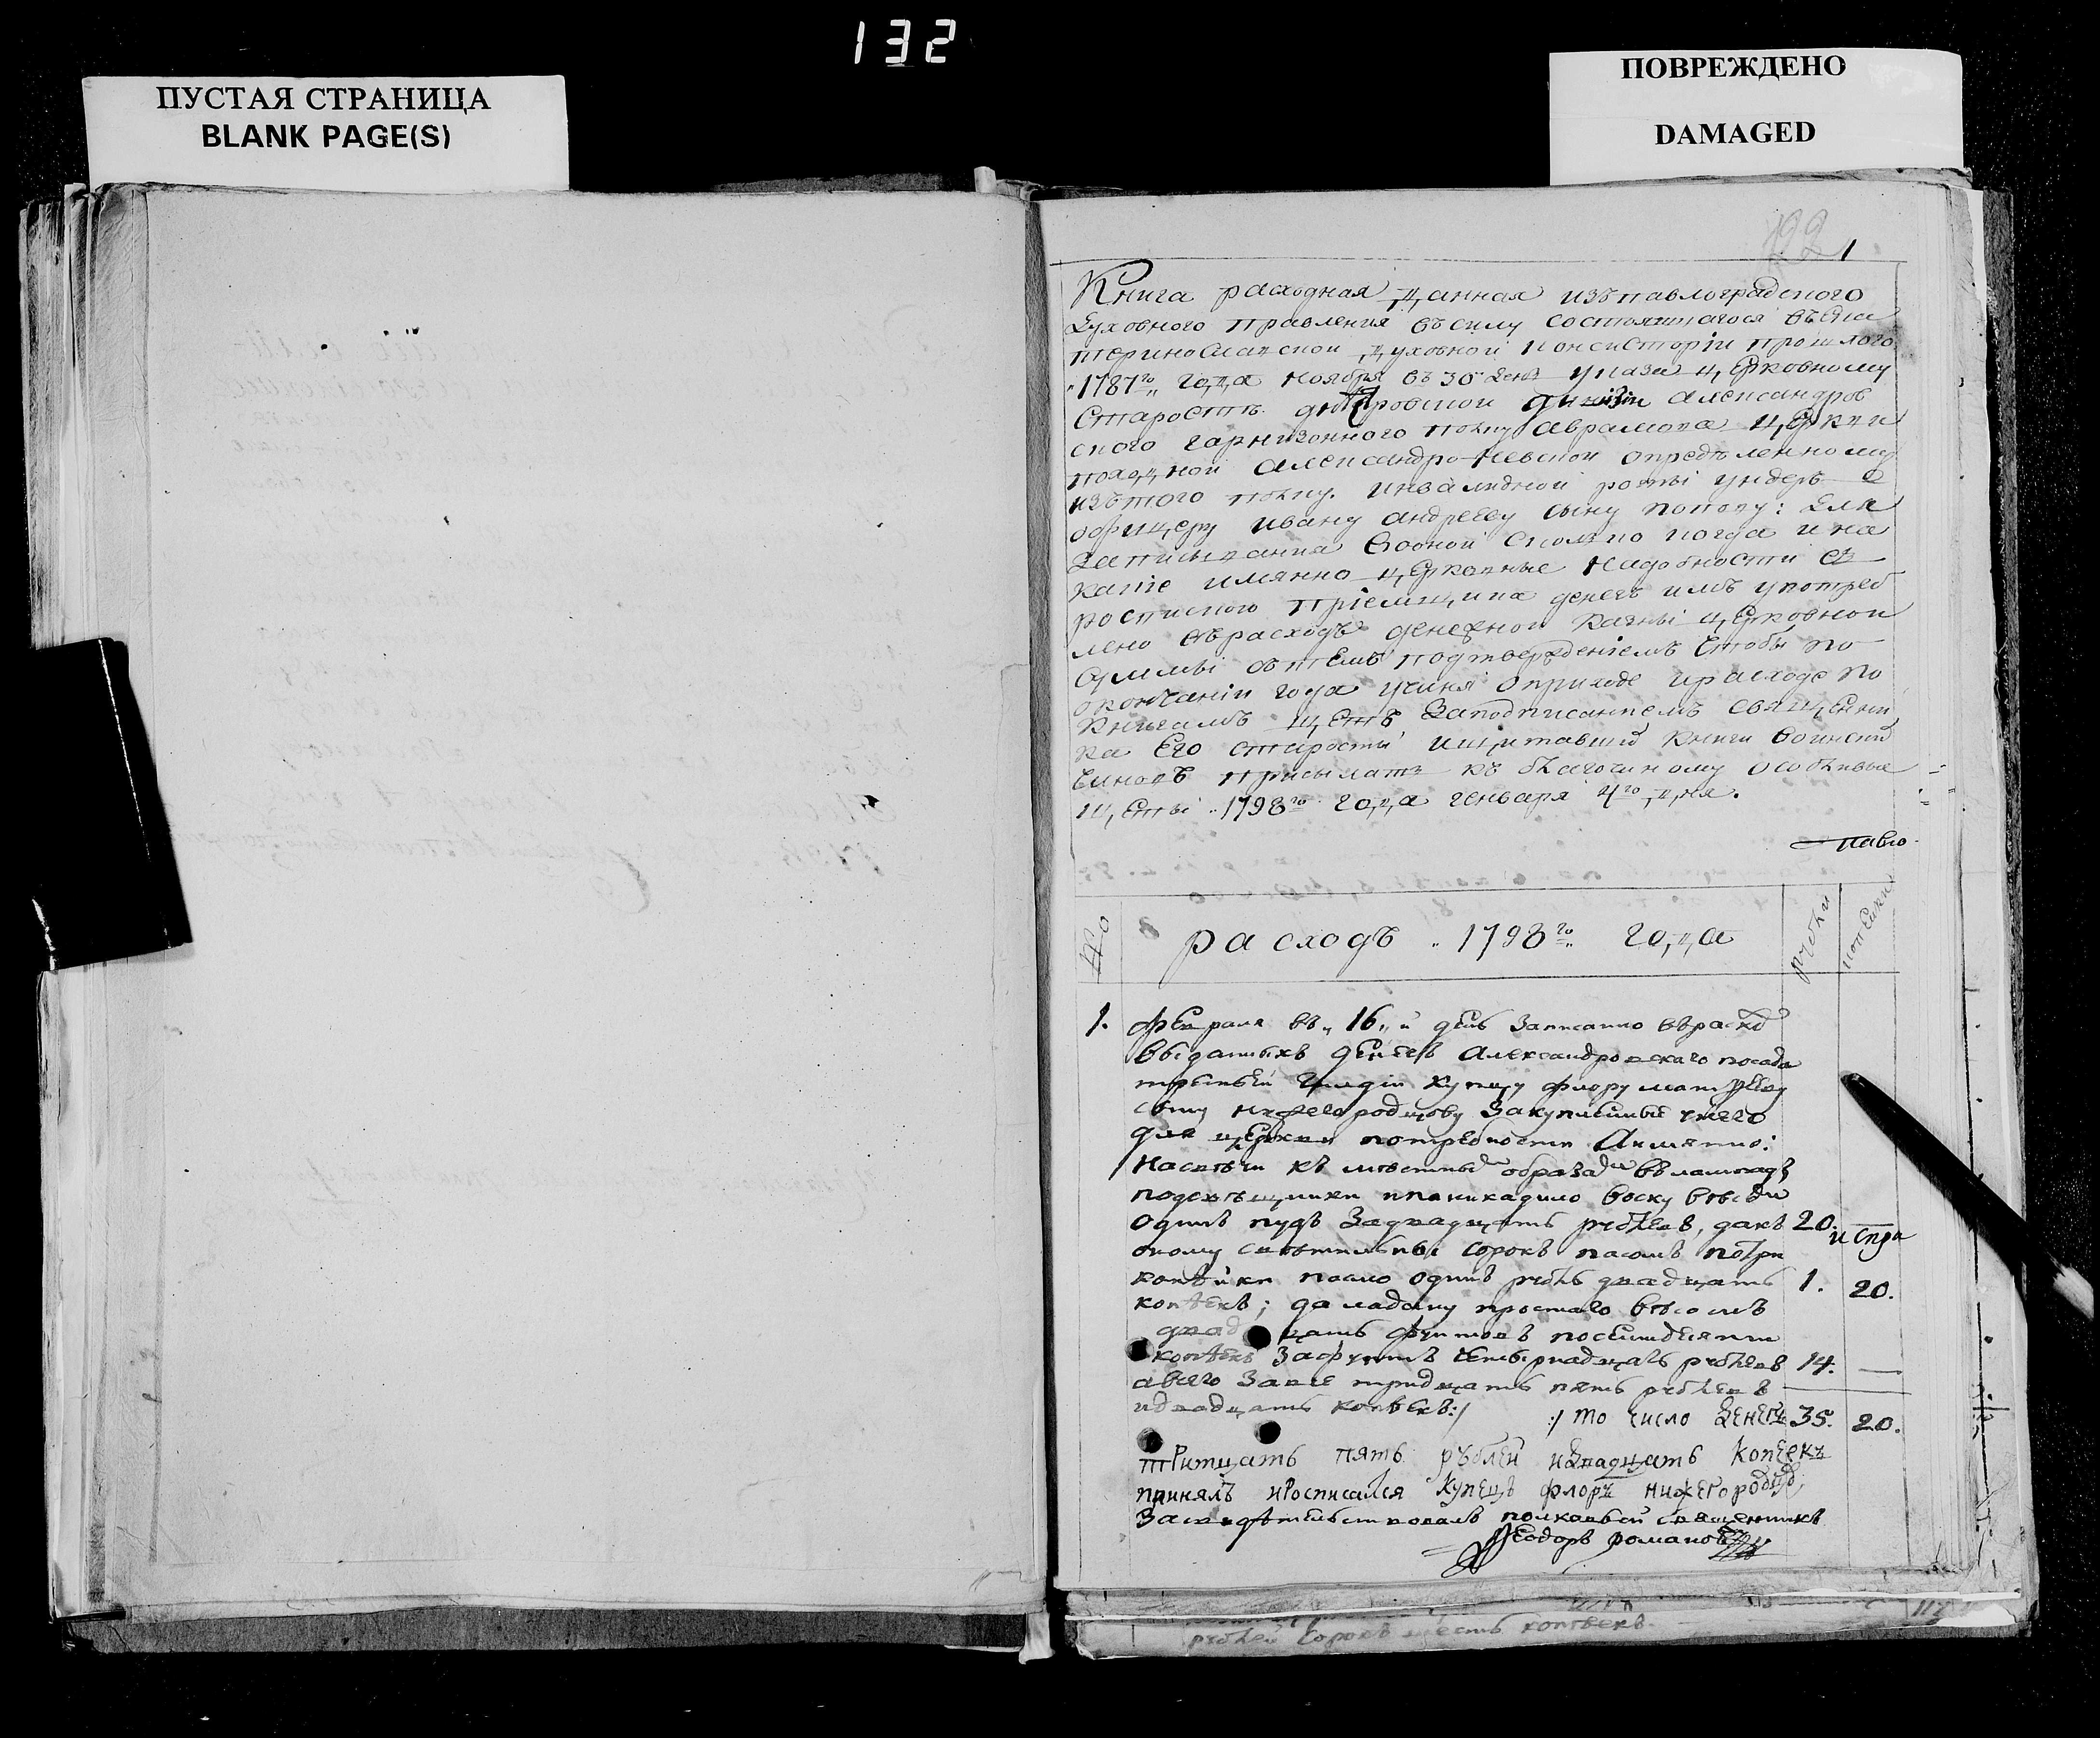 132
ПУСТАЯ СТРАНИЦА
BLANK PAGE(S)
ПОВРЕЖДЕНО
DAMAGED
192
1
Книга расходная данная изъ павлоградского
духовного правления въ силу состоявшагося въ Ека
теринославской духовной консисторіи прошлого
1787го года ноября въ 30 день указа церковному
старостѣ днѣпровской дивизіи александров
ского гарнизонного полку аврамова церкви
походной александро-Невской опредѣленному
изъ того полку инвалидной роты ундеръ
офицеру ивану андрееву сыну попову: для
записыванія въ оной сколько когда и на
какіе имянно церковные надобности съ
роспискою пріемщика денегъ имъ употреб
лено въ расходъ денежной казны церковной
суммы съ тѣмъ подтвержденіемъ чтобы по
окончаніи года учиня о приходе и расходе по
книгамъ щетъ за подписаніемъ священни
ка его старосты и щитавших книги воинских
чиновъ присылать къ благочиному особливые
щеты 1798го года генваря 4го дня.
павло
№
расходъ 1798го года
рубли
копейки
1. февраля въ 16й день записанно въ расхо
выданыхъ денегъ александровскаго посада
третьей гилдіи купцу флору матвееву
сыну нижегородцову за купленные у него
для церкви потребности а имянно:
на свѣчи къ мѣстным образам въ лампады
подсвѣщники и паникадило воску вѣсом
одинъ пудъ за двадцать рублевъ, да къ 20.
оному свѣтильны сорокъ пасомъ по три
копѣйки пасмо одинъ рубль двадцать 1. 20.
копѣекъ; да ладану простаго вѣсомъ
двадцать фунтовъ по семидесяти
копѣекъ за фунтъ четырнадцать рублевъ 14. —
а всего за все тридцать пять рублевъ
и двадцать копѣекъ:/ :/ то число денегъ 35. 20.
тритцать пять рублеи и двадцать копеекъ
принялъ и росписался купецъ флоръ нижегородцов
засвидѣтельствовалъ полковой священникъ
Феодоръ романов
117
рублей сорокъ шесть копѣекъ.